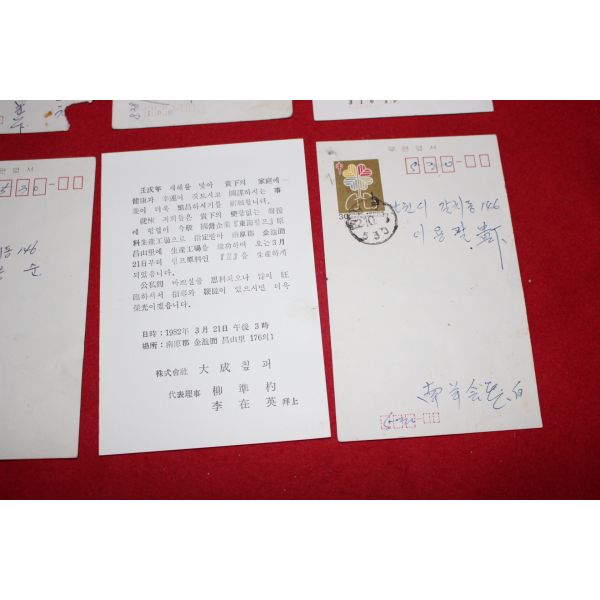 우편엽서
壬戌年 새해를 맞아 貴下의 家庭에
健康과 幸運이 깃드시고 圖謀하시는 事
業이 더욱 繁昌하시기를 祈願합니다.
就悚 저희들은 貴下의 變함없는 聲援
에 힘입어 今般 國營企業『東海펄프』原
料生産工場으로 指定받아 南原郡 金池面
昌山里에 生産工場을 竣功하여 오는 3月
21日부터 펄프原料인 『칲』을 生産하게
되었읍니다.
公私間 바쁘실줄 思料되오나 많이 旺
臨하셔서 指導와 鞭撻이 있으시면 더욱
榮光이겠읍니다.
日時: 1982年 3月 21日 午後 3時
場所: 南原郡 金池面 昌山里 176의1
株式會社 大成칲퍼
代表理事 柳準杓
李在英 拜上
우편엽서
530
30
남원시 갈치동 146
이용
530
146
순